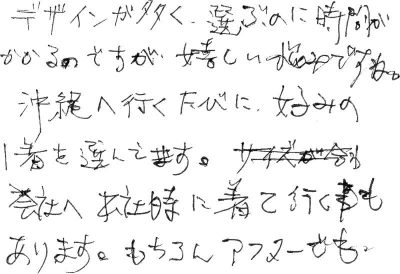 デザインが多く、選ぶのに時間が
かかるのですが、嬉しい悩みですね。
沖縄へ行くたびに、好みの
1着を選んでます。
会社へ出社時に着て行く事も
あります。もちろんアフターでも。